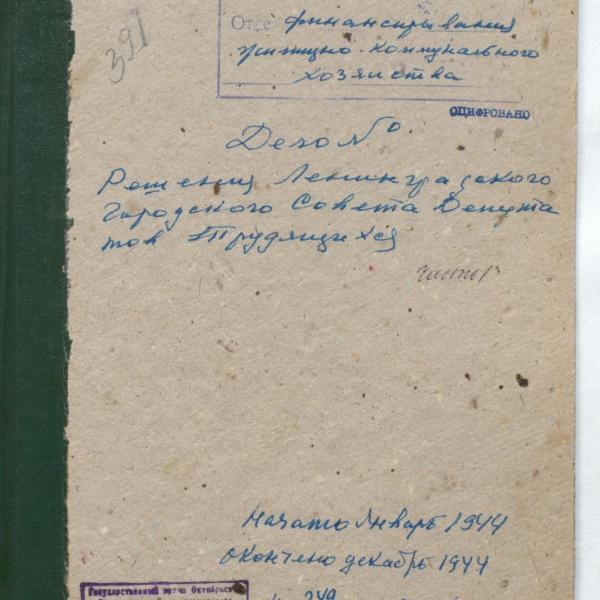 391
Отде финансирования
жилищно-коммунального
хозяйства
ОЦИФРОВАНО
Дело №
Решения Ленинградского
Городского Совета Депута
тов Трудящихся
часть I
Начато Январь 1944
Окончено декабрь 1944
249
Государственный архив Октябрьск